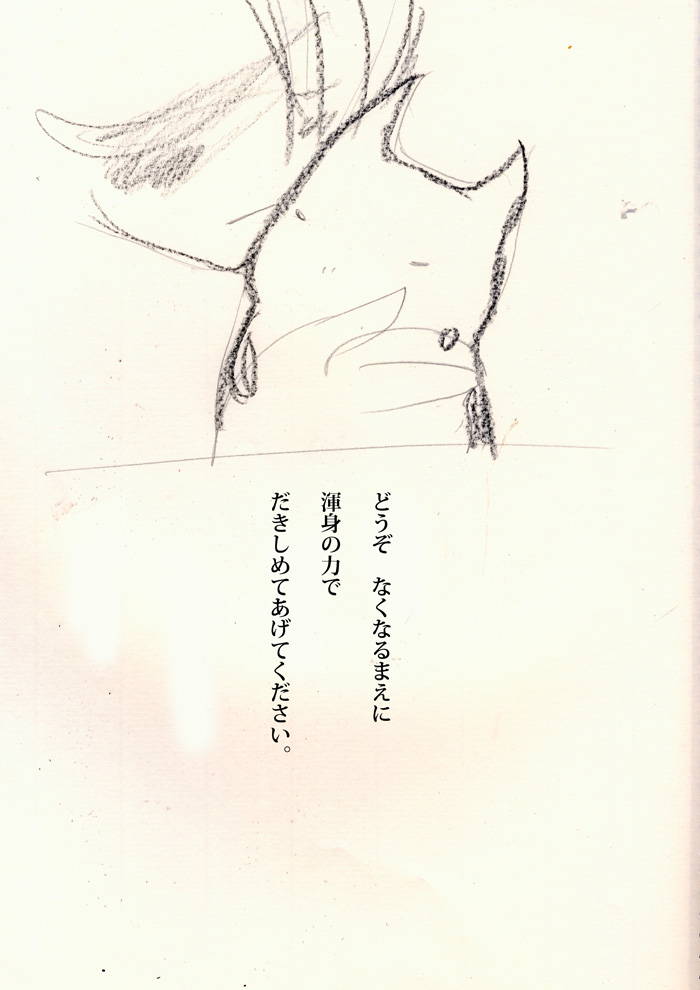 どうぞ　なくなるまえに
渾身の力で
だきしめてあげてください。